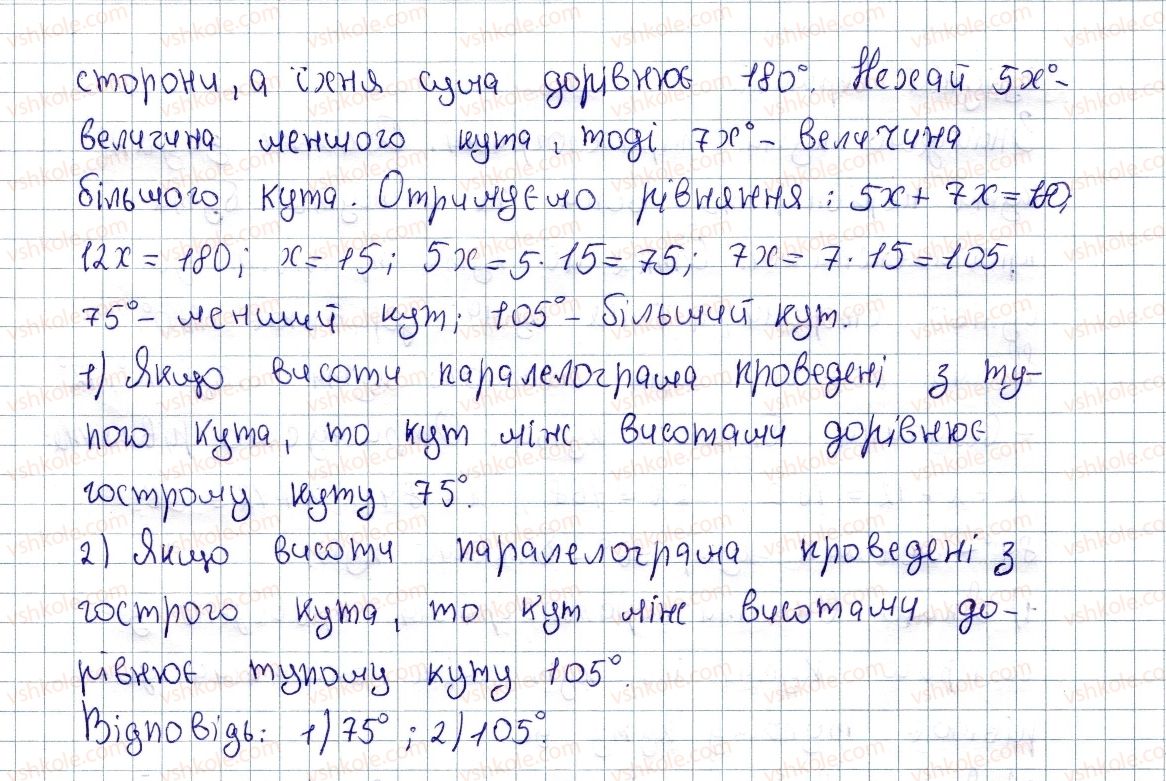 сторони, а їхня сума дорівнює 180°. Нехай 5x° –
величина меншого кута, тоді 7x° – величина
більшого кута. Отримуємо рівняння: 5x + 7x = 180;
12x = 180; x = 15; 5x = 5 · 15 = 75; 7x = 7 · 15 = 105.
75° – менший кут; 105° – більший кут.
1) Якщо висоти паралелограма проведені з ту-
пого кута, то кут між висотами дорівнює
гострому куту 75°.
2) Якщо висоти паралелограма проведені з
гострого кута, то кут між висотами до-
рівнює тупому куту 105°.
Відповідь: 1) 75°; 2) 105°.